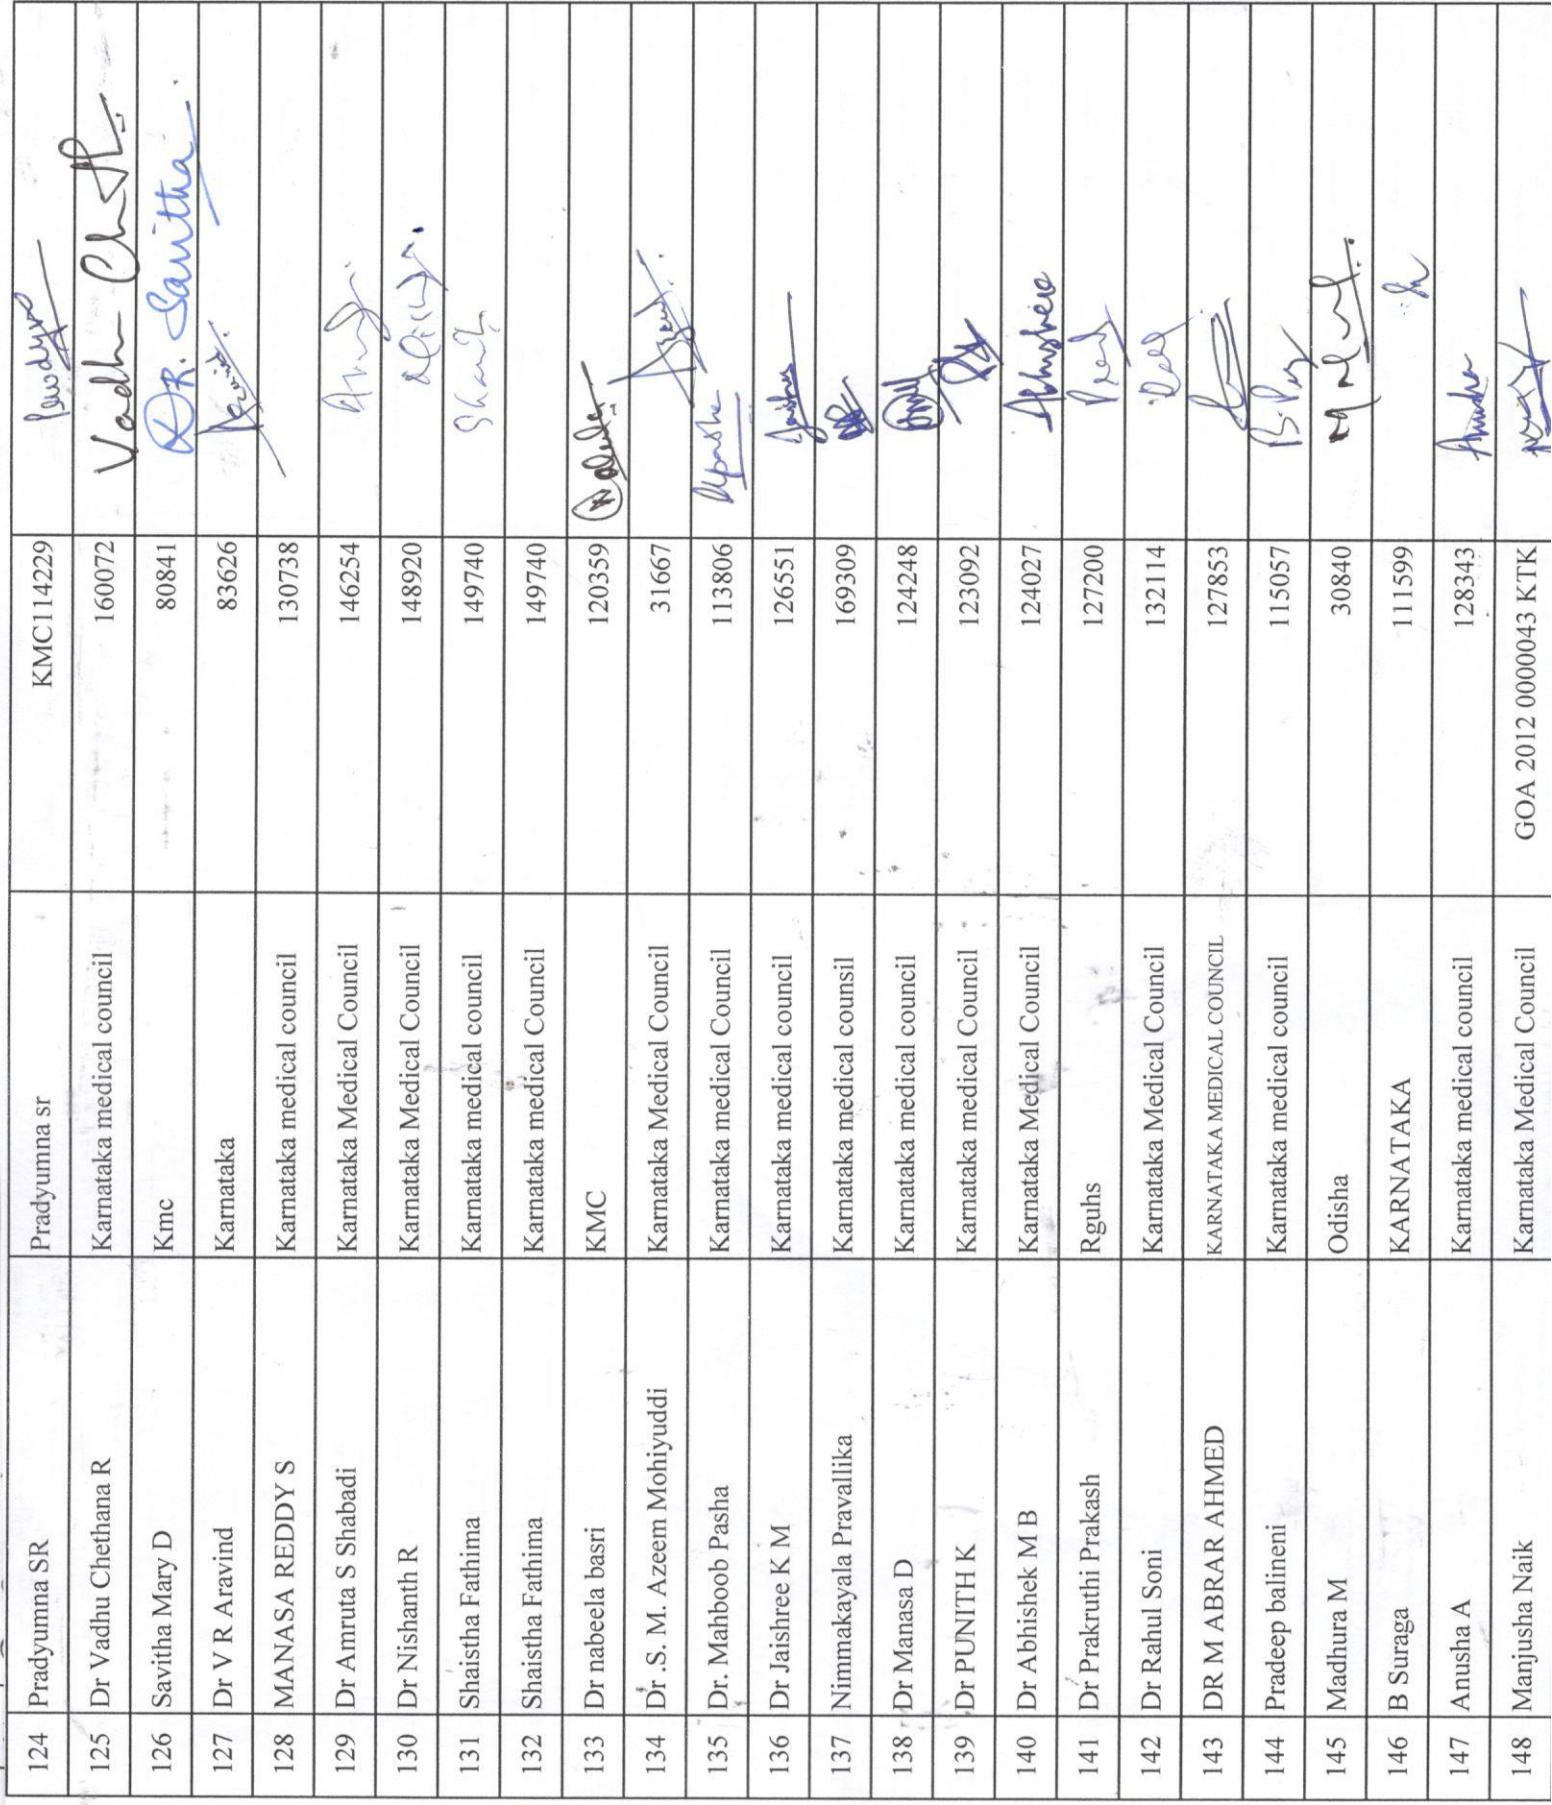 124 Pradyumna SR Pradyumna sr KMC114229
125 Dr Vadhu Chethana R Karnataka medical council 160072
126 Savitha Mary D Kmc 80841 DR. Savitha
127 Dr V R Aravind Karnataka 83626
128 MANASA REDDY S Karnataka medical council 130738
129 Dr Amruta S Shabadi Karnataka Medical Council 146254
130 Dr Nishanth R Karnataka Medical Council 148920
131 Shaistha Fathima Karnataka medical council 149740
132 Shaistha Fathima Karnataka medical Council 149740
133 Dr nabeela basri KMC 120359
134 Dr .S. M. Azeem Mohiyuddi Karnataka Medical Council 31667
135 Dr. Mahboob Pasha Karnataka medical Council 113806
136 Dr Jaishree K M Karnataka medical council 126551
137 Nimmakayala Pravallika Karnataka medical counsil 169309
138 Dr Manasa D Karnataka medical council 124248
139 Dr PUNITH K Karnataka medical Council 123092
140 Dr Abhishek M B Karnataka Medical Council 124027
141 Dr Prakruthi Prakash Rguhs 127200
142 Dr Rahul Soni Karnataka Medical Council 132114
143 DR M ABRAR AHMED KARNATAKA MEDICAL COUNCIL 127853
144 Pradeep balineni Karnataka medical council 115057
145 Madhura M Odisha 30840
146 B Suraga KARNATAKA 111599
147 Anusha A Karnataka medical council 128343 Anusha
148 Manjusha Naik Karnataka Medical Council GOA 2012 0000043 KTK